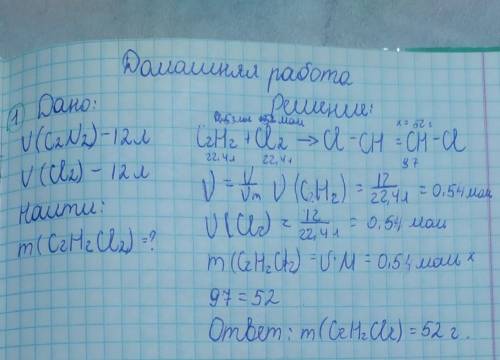 Домашняя работа
1) Дано:
V(C2N2) - 12 л
V(Cl2) - 12 л
Найти:
m(C2H2Cl2) = ?
Решение:
x = 52 г
C2H2 + Cl2 → Cl - CH = CH - Cl
22,4 л 22,4 л 97
ν = V/Vm ν(C2H2) = 12/22,4 л = 0,54 моль
ν(Cl2) = 12/22,4 л = 0,54 моль
m(C2H2Cl2) = ν · M = 0,54 моль ×
97 = 52
Ответ: m(C2H2Cl2) = 52 г.